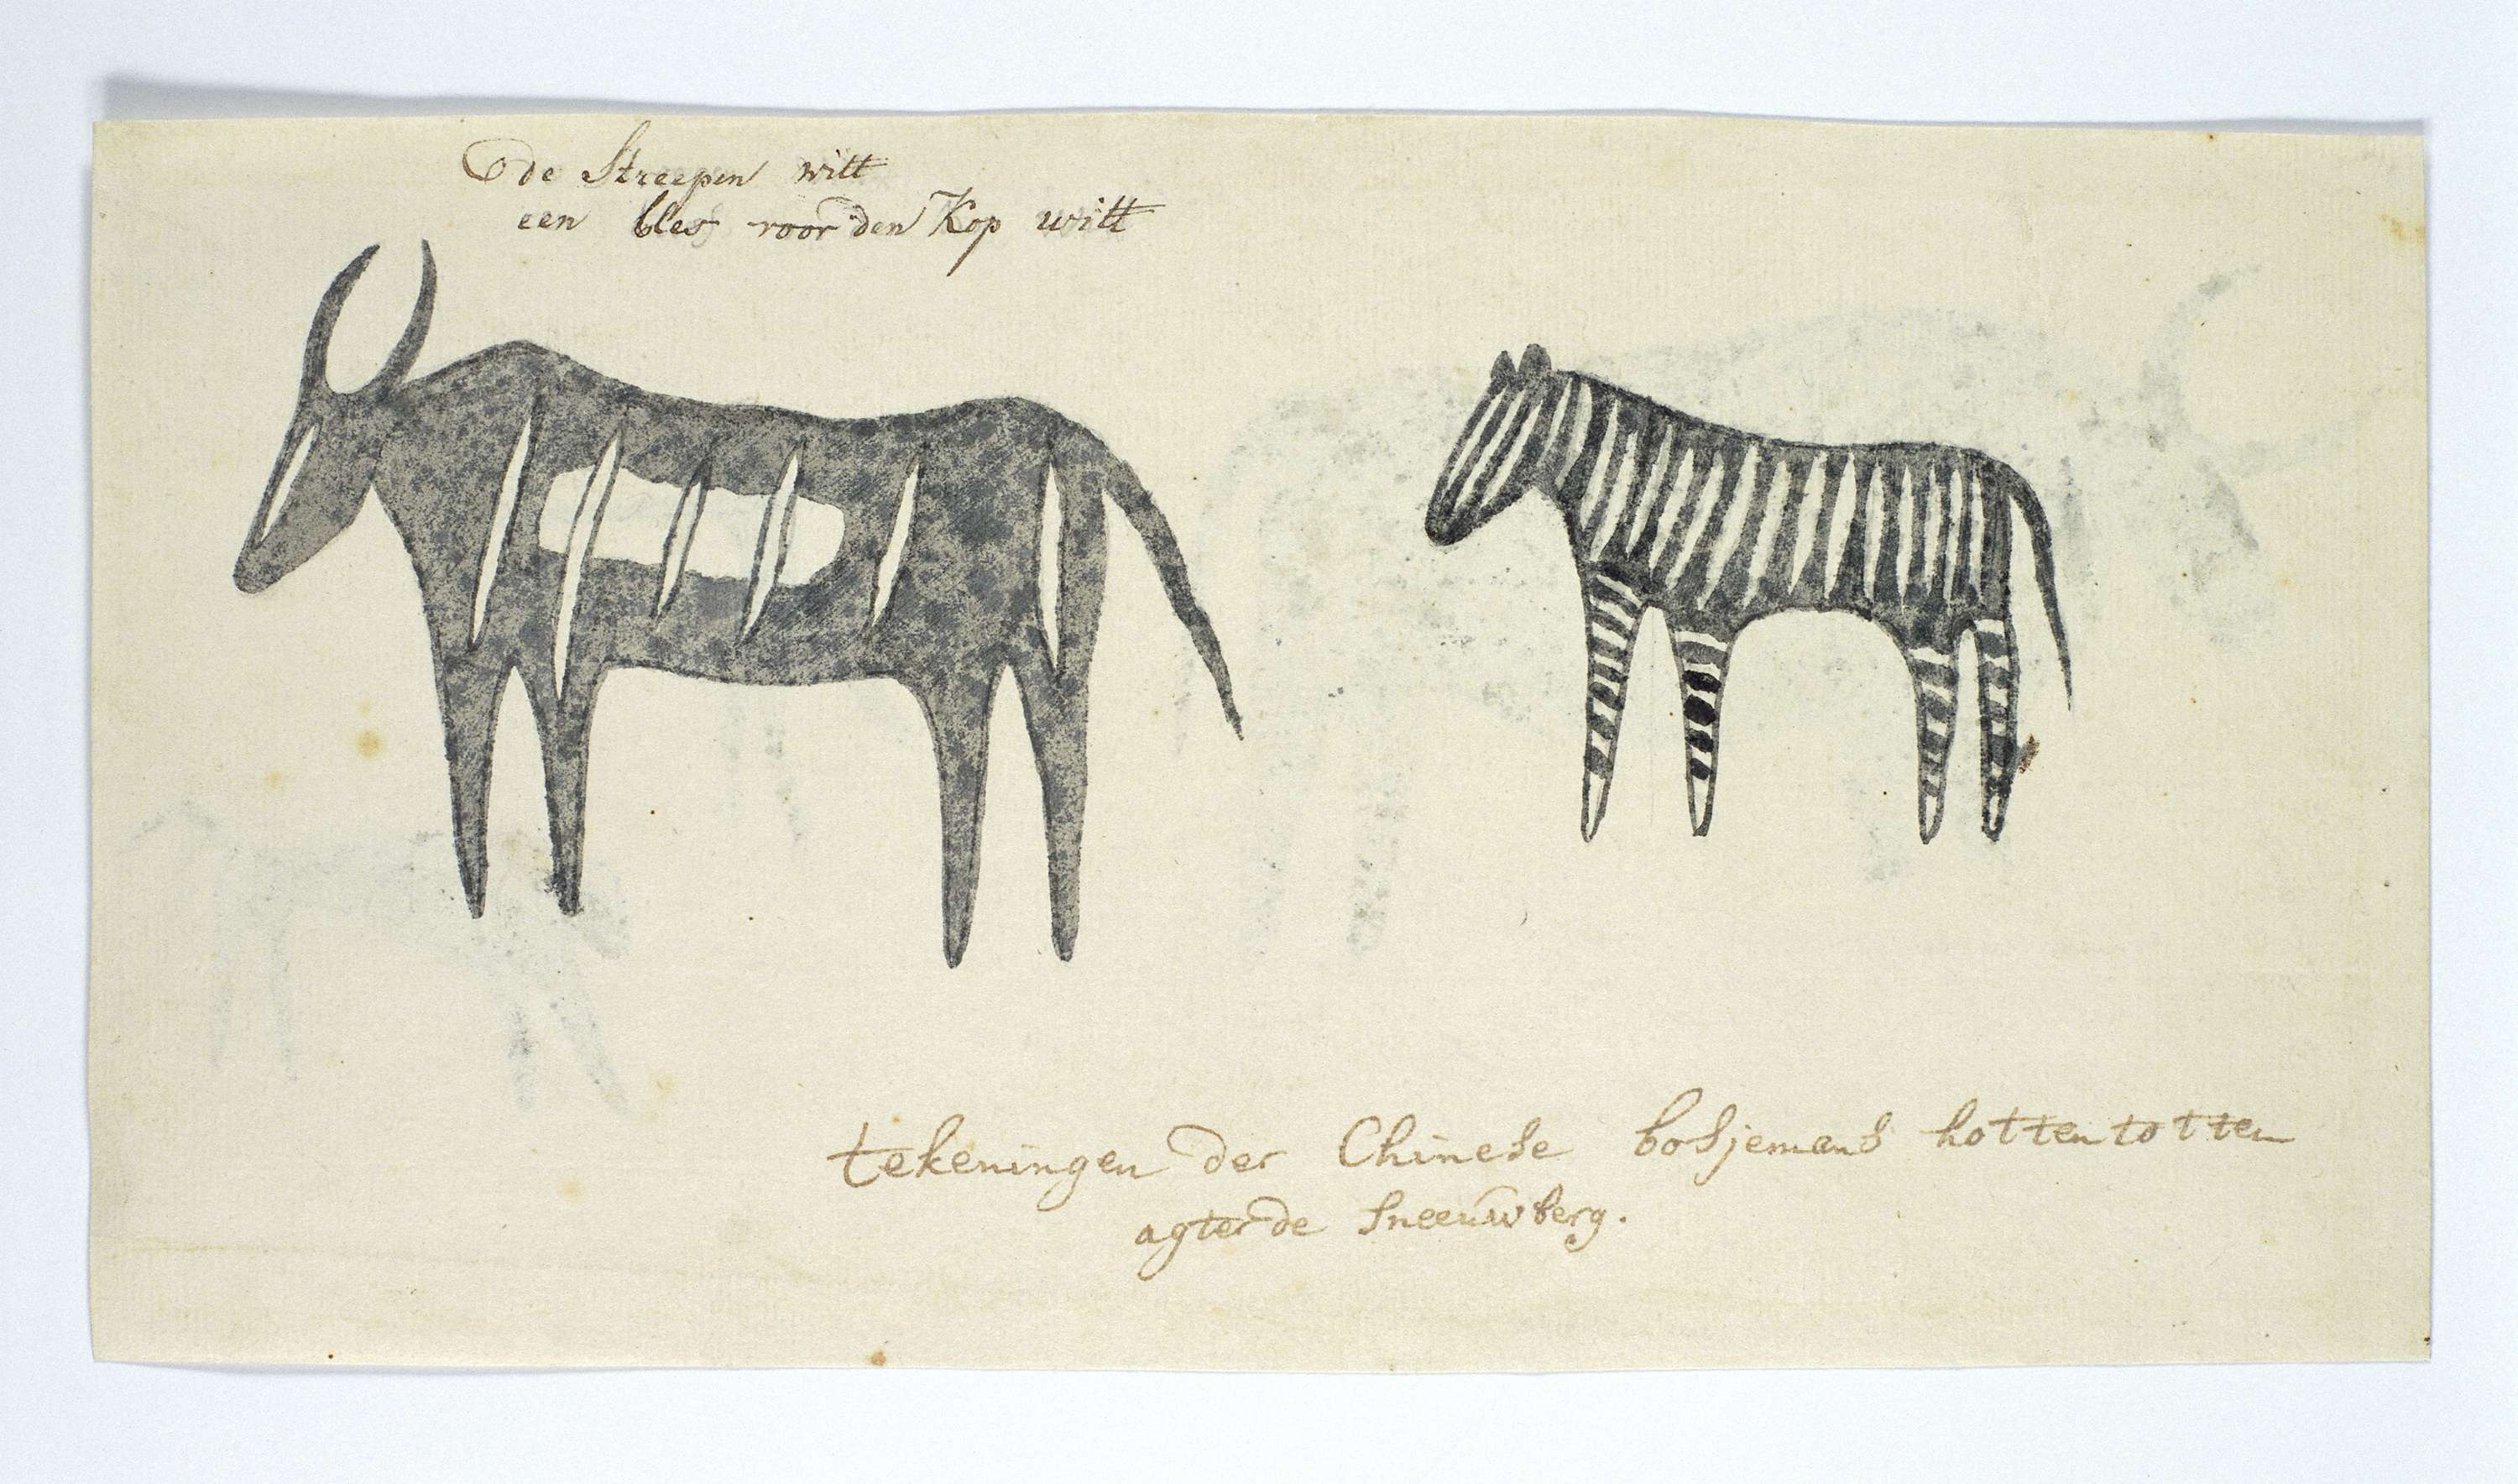 de Streepen witt
een bles voor den Kop witt
tekeningen der Chinese bosjemans hottentotten
agter de Sneeuwberg.